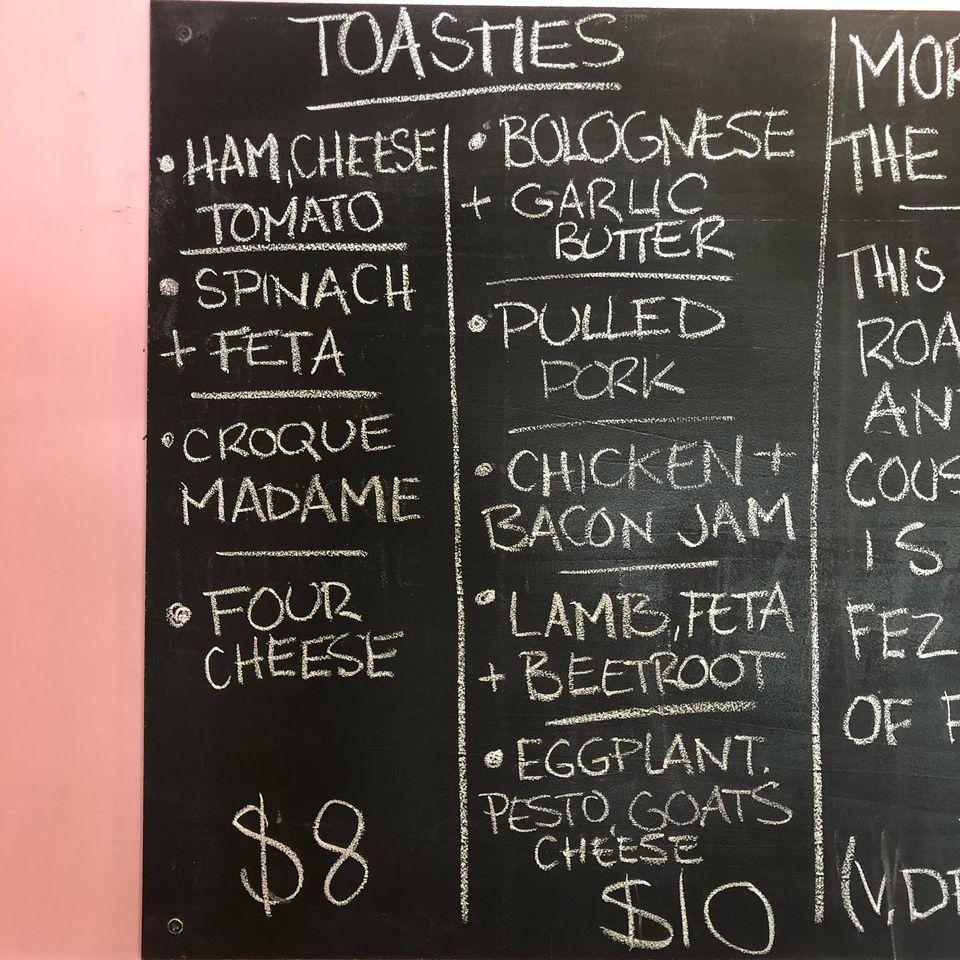 TOASTIES
• HAM, CHEESE
TOMATO
• SPINACH
+ FETA
• CROQUE
MADAME
• FOUR
CHEESE
$8
• BOLOGNESE
+ GARLIC
BUTTER
• PULLED
PORK
• CHICKEN +
BACON JAM
• LAMB, FETA
+ BEETROOT
• EGGPLANT,
PESTO, GOATS
CHEESE
$10
THE
THIS
IS
FEZ
OF